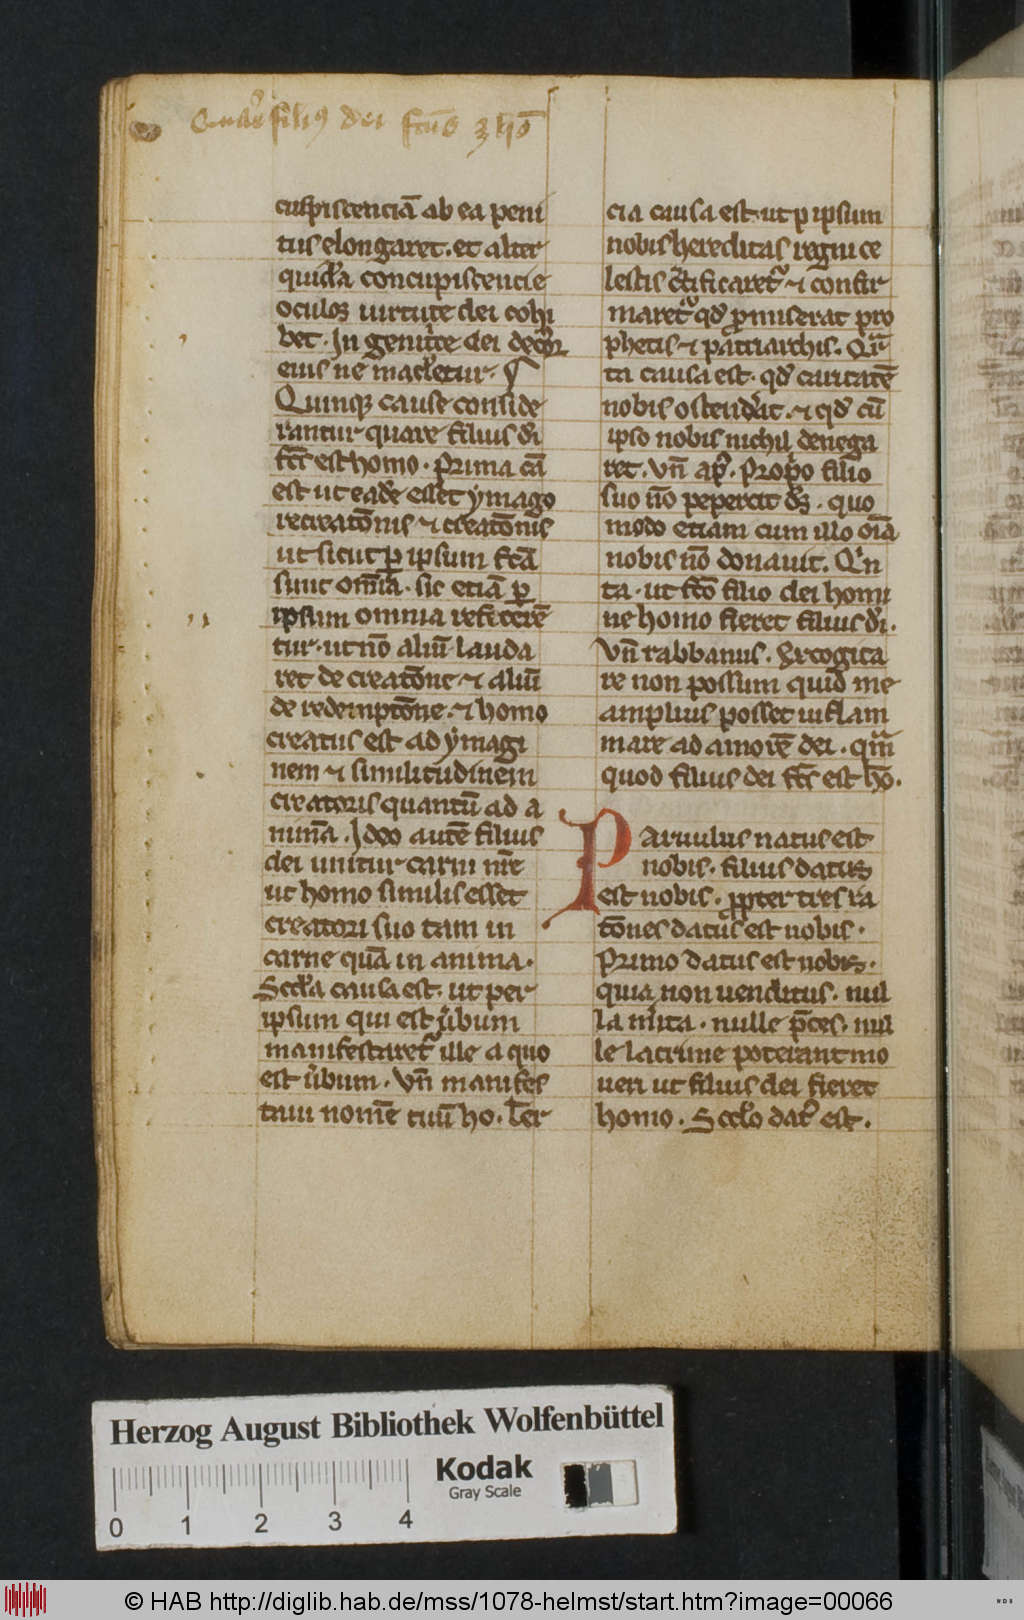 Quar filiꝰ dei fcūs ⁊ hō
cupiscenciā ab ea peni
tus elongaret. et alter
qui illa concupiscencie
oculoꝝ uirtute dei cohi
bet. In genitͥce dei
eius ne macͪletur. ¶
Quinqꝫ cause conside
rantur quare filius dī
fcs est homo. Prima cā
est ut eadē esset ymago
recreatōnis ⁊ creatōnis
ut sicut ꝑ ipsum fcā
sunt om̄ia. sic etiā ꝑ
ipsum omnia reficerē
tur. ut nō aliū lauda
ret de creatōne. ⁊ aliū
de redemptōne. ⁊ homo
creatus est ad ymagi
nem ⁊ similitudinem
creatoris quantū ad a
nimā. Ideo autē filius
dei unitur carni nr̄e
ut homo similis esset
creatori suo tam in
carne quā in anima.
Scd̓a causa est. ut per
ipsum qui est u̓bum
manifestaretᷣ ille a quo
est u̓bum. Vn̄ manifes
taui nomē tuū ho. Ter
cia causa est. ut p ipsum
nobis hereditas regni ce
lestis c̓tificaretᷣ ⁊ confir
maretᷣ qđ ꝓmiserat pro
phetis ⁊ patriarchis. Qͣr
ta causa est. qđ caritatē
nobis ostend̓at. ⁊ qđ cū
ipso nobis nichil denega
ret. Vn̄ ap̄. Proprͦo filio
suo nō pepercit dꝫ. quo
modo etiam cum illo oīa
nobis nō donauit. Qͥn
ta. ut fc̄o filio dei homi
ne homo fieret filius dī.
Vn̄ rabbanus. Excogita
re non possum quid me
amplius posset inflam
mare ad amorē dei. qm̄
quod filius dei fcs est hō.
Paruulus natus est
nobis. filius datus
est nobis. ꝓpter tres ra
tōnes datus est nobis.
Primo datus est nobis.
quia non uenditus. nul
la m̓ita. nulle p̄ces. nul
le lacrime poterant mo
ueri ut filius dei fieret
homo. Scd̓o datᷣ est.
Herzog August Bibliothek Wolfenbüttel
Kodak
Gray Scale
0 1 2 3 4
© HAB http://diglib.hab.de/mss/1078-helmst/start.htm?image=00066